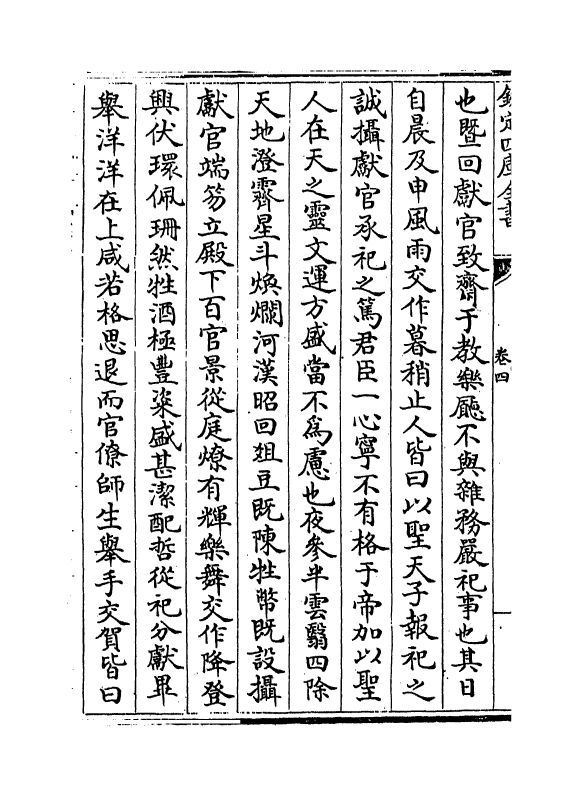 欽定四庫全書
卷四
也暨回獻官致齋于教樂廳不與雜務嚴祀事也其日
自晨及申風雨交作暮稍止人皆曰以聖天子報祀之
誠攝獻官承祀之篤君臣一心寧不有格于帝加以聖
人在天之靈文運方盛當不為慮也夜參半雲翳四除
天地澄霽星斗煥爛河漢昭回俎豆既陳牲幣既設攝
獻官端笏立殿下百官景從庭燎有輝樂舞交作降登
興伏環佩珊然牲酒極豐粢盛甚潔配哲從祀分獻畢
舉洋洋在上咸若格思退而官僚師生舉手交賀皆曰